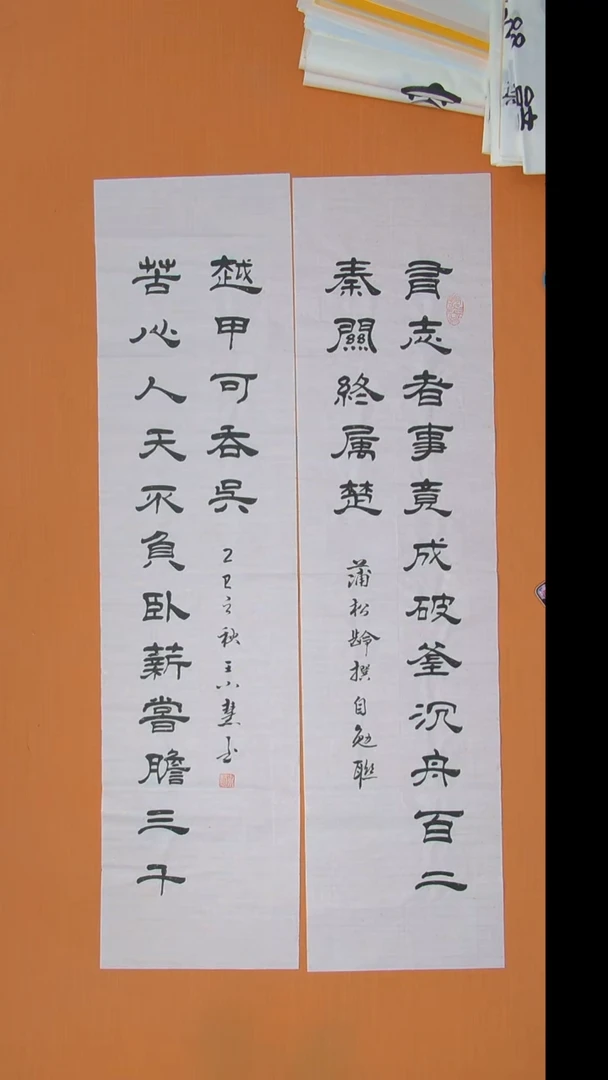 有志者事竟成破釜沉舟百二
秦關終属楚
蒲松齡撰自勉聯
苦心人天不負卧薪嘗膽三千
越甲可吞吳
乙巳之秋王小慧书